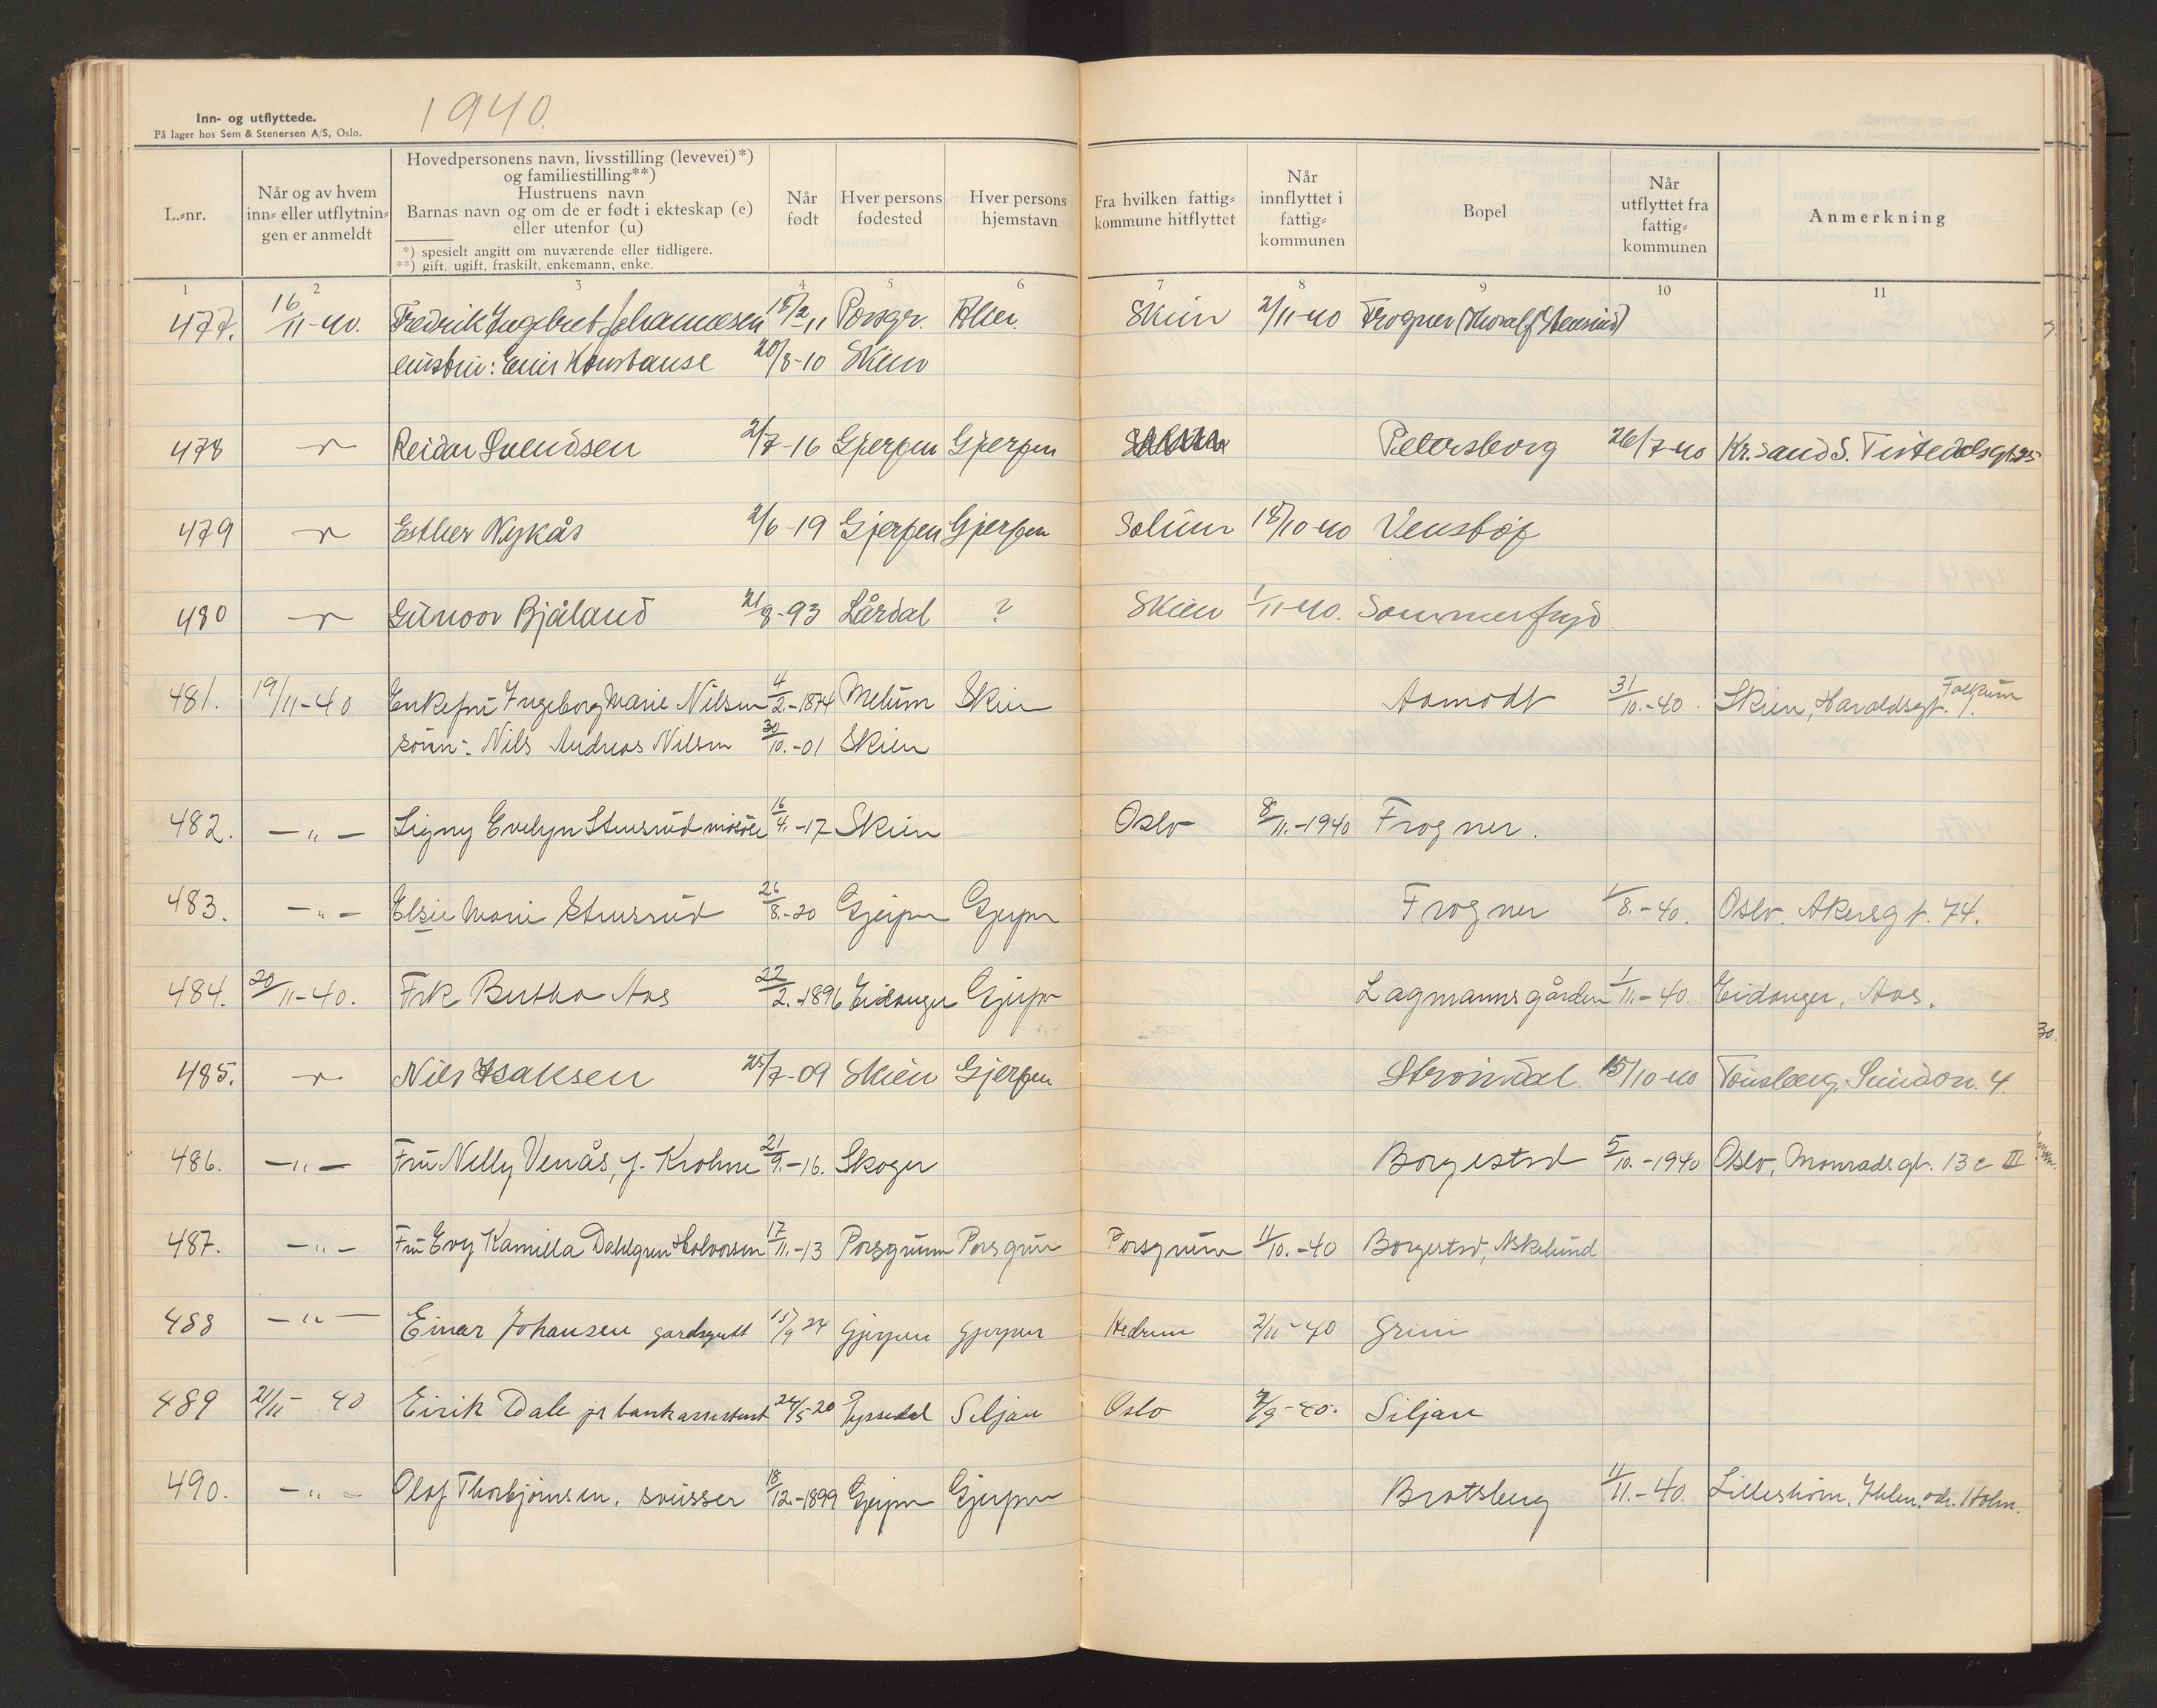 Inn- og utflyttede.
På lager hos Sem & Stenersen A/S, Oslo.
1940.
L.-nr.
Når og av hvem
inn- eller utflytnin-
gen er anmeldt
Hovedpersonens navn, livsstilling (levevei)*)
og familiestilling**)
Hustruens navn
Barnas navn og om de er født i ekteskap (e)
eller utenfor (u)
*) spesielt angitt om nuværende eller tidligere.
**) gift, ugift, fraskilt, enkemann, enke.
Når
født
Hver persons
fødested
Hver persons
hjemstavn
Fra hvilken fattig-
kommune hitflyttet
Når
innflyttet i
fattig-
kommunen
Bopel
Når
utflyttet fra
fattig-
kommunen
Anmerkning
1 2 3 4 5 6 7 8 9 10 11
477. 16/11-40. Fredrik Ingebret Johannesen 15/2-11 Porsgr. Skien 2/11-40 Frogner (Thoralf Stensrud)
Konstanse 20/8-10 Skien
478 Reidar Svendsen 2/7-16 Gjerpen Gjerpen Petersborg 26/7-40 Kr.sand S. Tistedalsgt 25
479 Esther Nykås 2/6-19 Gjerpen Gjerpen Solum 15/10-40 Venstøp
480 Gunnor Bjåland 21/8-93 Lårdal ? Skien 1/11-40. Sommerfryd
481. 19/11-40 Enkefru Ingeborg Marie Nilsen 4/2.-1874 Melum Skien Aamodt 31/10.-40. Skien, Haraldsgt. 1. Falkum
sønn: Nils Andreas Nilsen 30/10.-01 Skien
482. -"- Signy Evelyn Stensrud 16/4.-17 Skien Oslo 8/11.-1940 Frogner.
483. -"- Elsie Marie Stensrud 26/8.-20 Gjerpen Gjerpen Frogner 1/8.-40. Oslo. Akersgt. 74.
484. 20/11-40. Frk Bertha Aas 22/2.-1896 Eidanger Gjerpen Lagmannsgården 1/11.-40. Eidanger, Aas.
485. Nils Isaksen 25/7-09 Skien Gjerpen Strømdal. 15/10-40 Tønsberg, 4.
486. -"- Fru Nelly Venås, f. Krohne 21/9.-16. Skoger Borgestad 5/10.-1940 Oslo, Monradsgt. 13 c III
487. -"- Fru Evy Kamilla Dahlgren Halvorsen 17/11.-13 Porsgrunn Porsgrun Porsgrunn 11/10.-40 Borgestad, Askelund
488 -"- Einar Johansen gardsgutt 15/9 24 Gjerpen Gjerpen Hedrum 2/11-40 Grini
489 21/11 40 Eirik Dale bankassistent 24/5-20 Tyssedal Siljan Oslo 7/9-40. Siljan
490. -"- Olaf Thorbjørnsen, svisser 18/12.-1899 Gjerpen Gjerpen Bratsberg 11/11.-40. Lillestrøm, Holm.